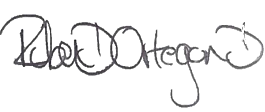 Robert D Ortegon D